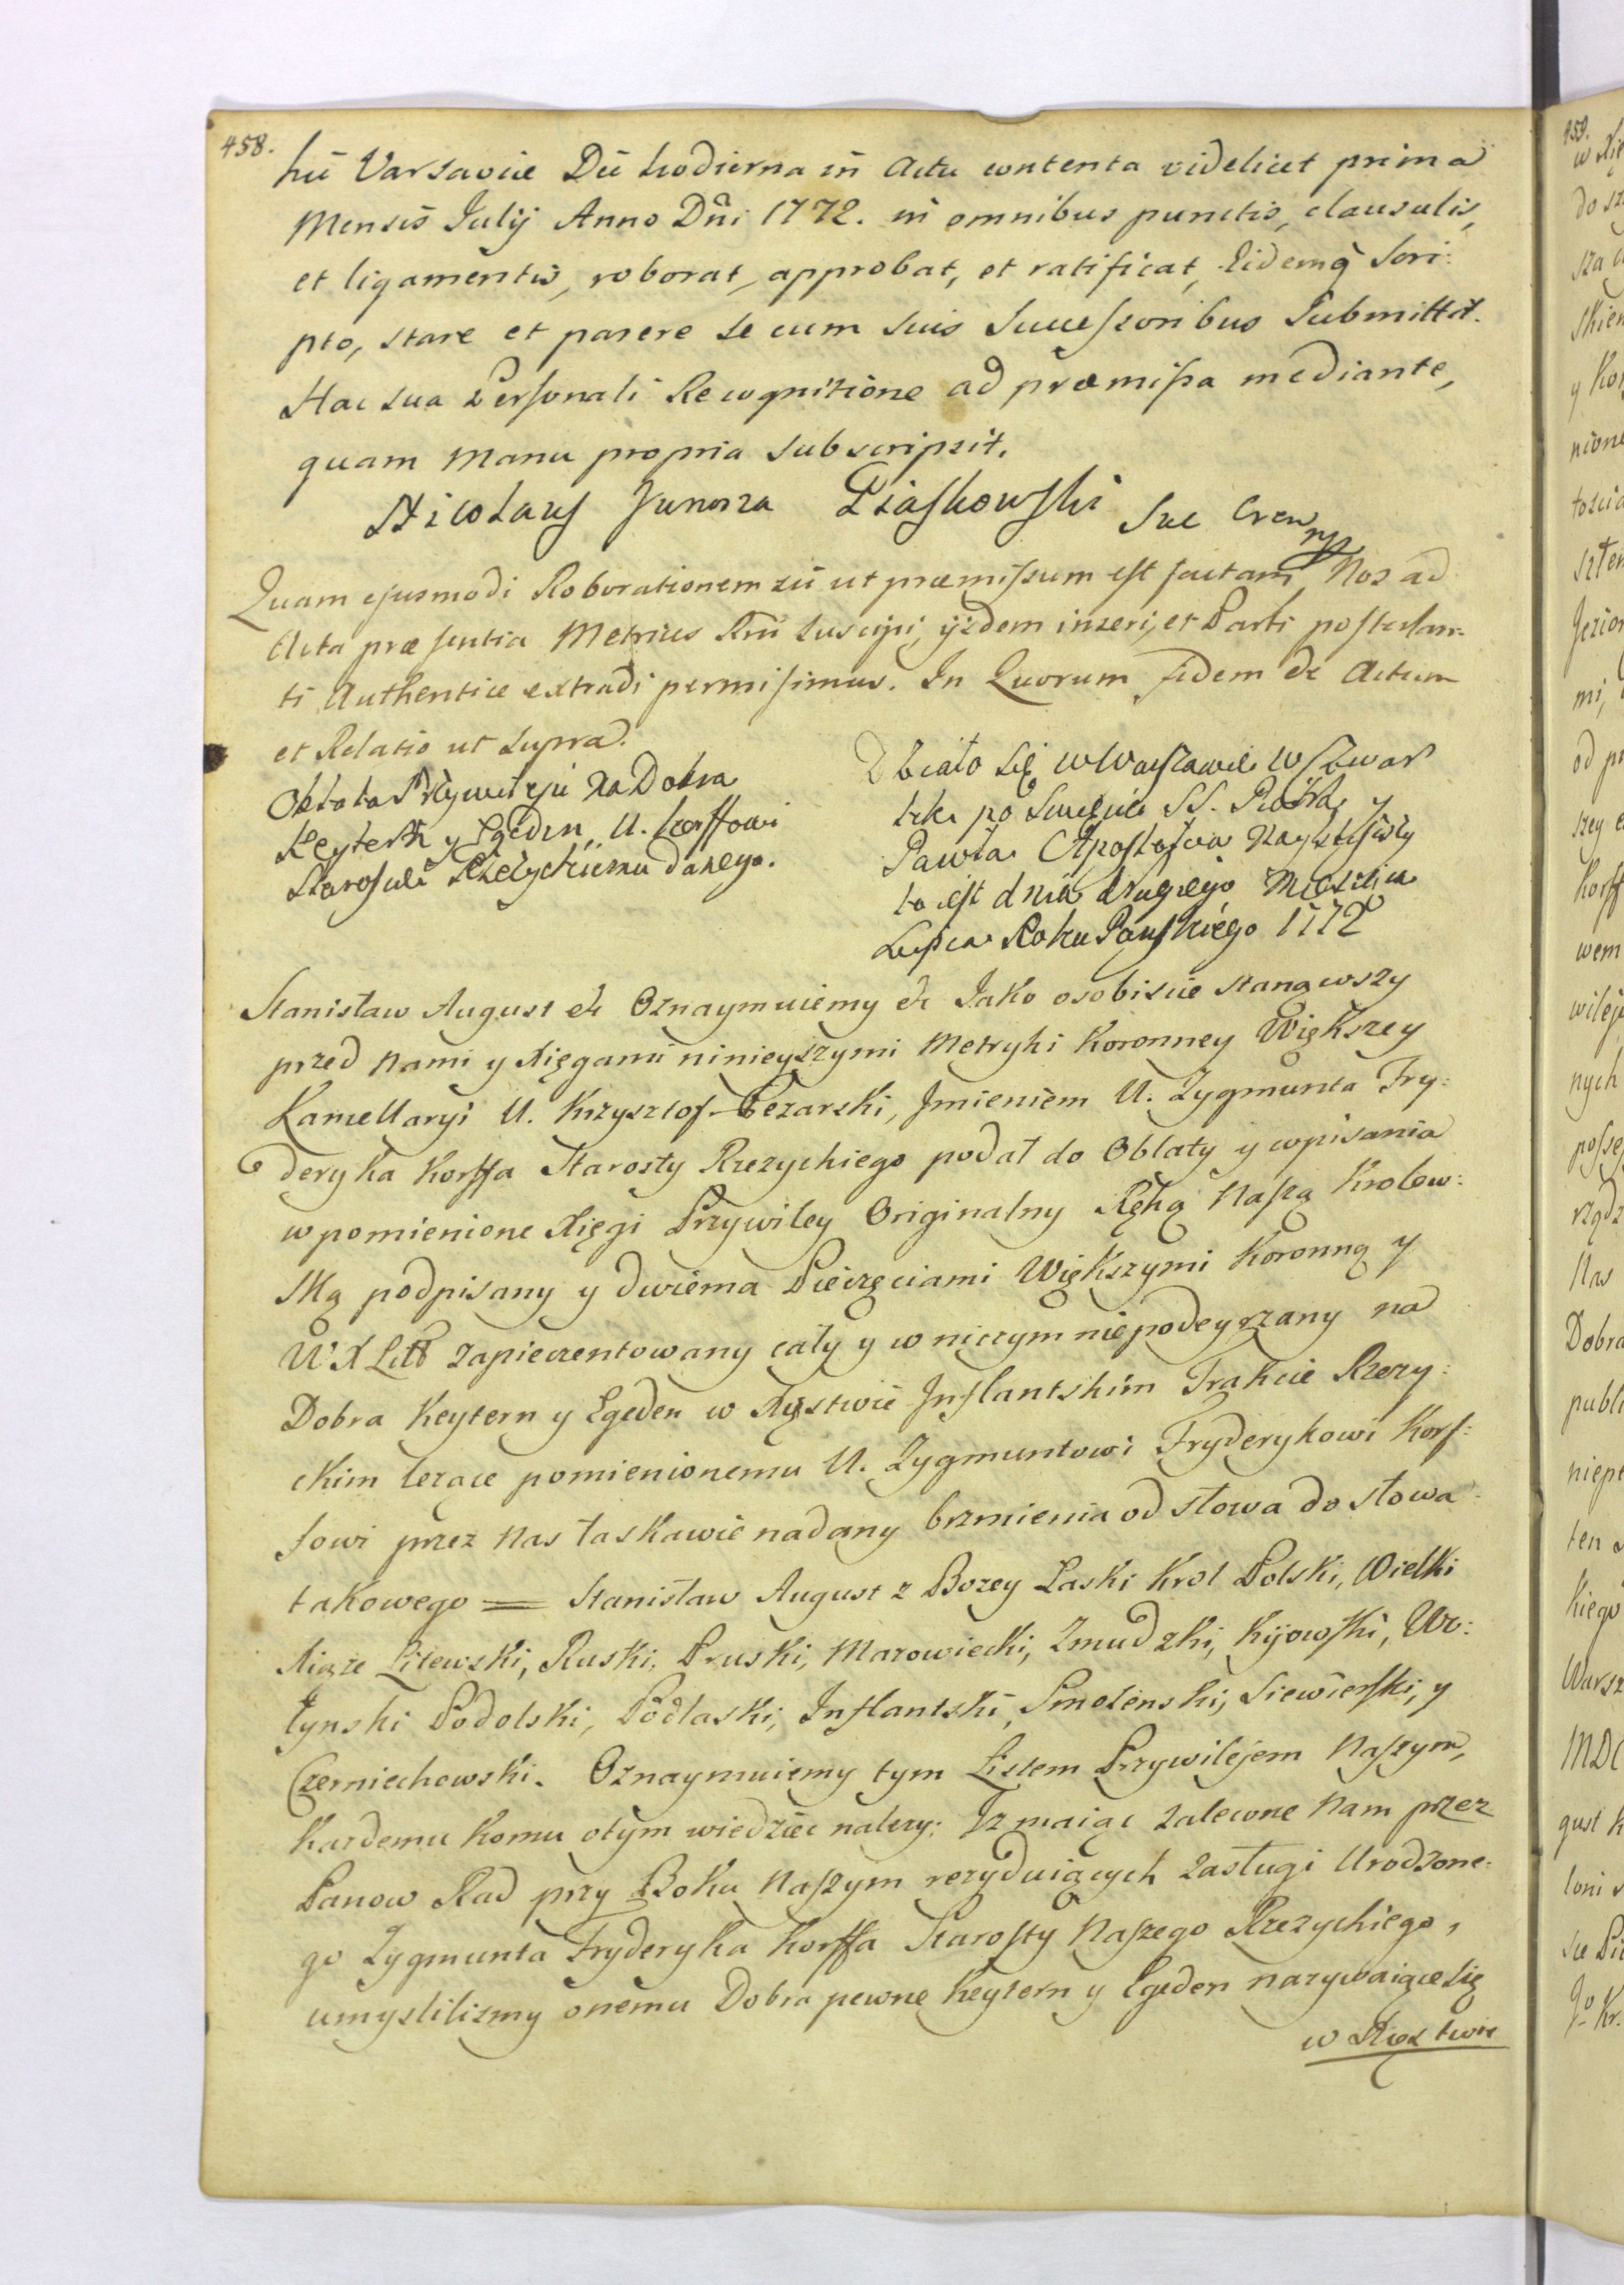 458.
hic Varsaviæ Die hodierna in Actu contenta videlicet prima
Mensis Julij Anno Dñi 1772. in omnibus punctis, clausulis,
et ligamentis, roborat, approbat, et ratificat, Eidemq̃ Scri:
pto, stare et parere se cum suis Successoribus submittit.
Hac sua Personali Recognitione ad præmissa mediante,
quam Manu propria subscripsit.
Nicolaus Junosza Piaskowski
Quam ejusmodi Roborationem sic ut præmissum est factam, Nos ad
Acta præsentia Metrices Rñi suscipi, ijsdem inseri, et Parti postulan:
ti Authentice extradi permisimus. In Quorum fidem &c Actum
et Relatio ut supra.
Oblata Przywileju na Dobra
Keytern y Egeden, U. Korffowi
Staroscie Rzezyckiemu danego.
Działo się w Warszawie w Czwar
tek po Swięcie SS. Piotra y
Pawła Apostołow Nayblizszy
to iest dnia drugiego Miesiąca
Lipca Roku Pańskiego 1772
Stanisław August &c Oznaymuiemy &c Jako osobiscie stanąwszy
przed Nami y Xięgami ninieyszymi Metryki Koronney Większey
Kancellaryi U. Krzysztof Bezarski, Jmieniem U. Zygmunta Fry:
deryka Korffa Starosty Rzezyckiego podał do Oblaty y wpisania
w pomienione Xięgi Przywiley Originalny Ręką Naszą Krolew:
ską podpisany y dwiema Pieczęciami Większymi Koronną y
W X Litt zapieczentowany cały y w niczym niepodeyrzany na
Dobra Keytern y Egeden w Xięstwie Jnflantskim Trakcie Rzezy:
ckim lezące pomienionemu U. Zygmuntowi Fryderykowi Korf:
fowi przez Nas łaskawie nadany brzmienia od słowa do słowa
takowego = Stanisław August z Bozey Łaski Krol Polski, Wielki
Xiąze Litewski, Ruski, Pruski, Mazowiecki, Zmudzki, Kijowski, Wo:
łynski Podolski, Podlaski, Inflantski, Smolenski, Siewierski, y
Czerniechowski. Oznaymuiemy tym Listem Przywilejem Naszym,
Kazdemu komu otym wiedzieć nalezy: Jz maiąc zalecone Nam przez
Panow Rad przy Boku Naszym rezyduiących zasługi Urodzone:
go Zygmunta Fryderyka Korffa Starosty Naszego Rzezyckiego,
umyslilismy onemu Dobra pewne Keytern y Egeden nazywaiące się
w Xięstwie